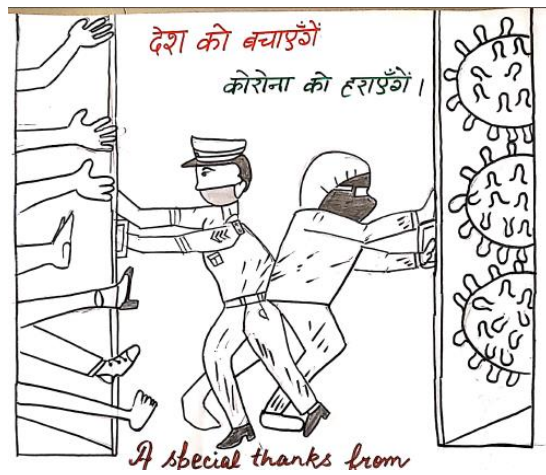 देश को बचाएँगें
कोरोना को हराएँगें ।
A special thanks from